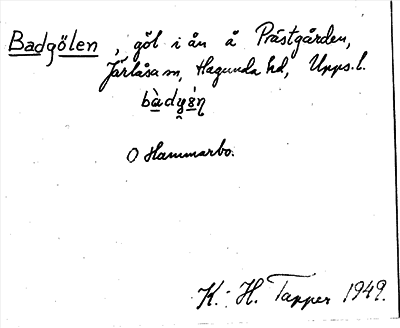 Badgölen, göl i ån å Prästgården,
Järlåsa sn, Hagunda hd, Upps. l.
O Hammarbo.
K. H. Tapper 1949.